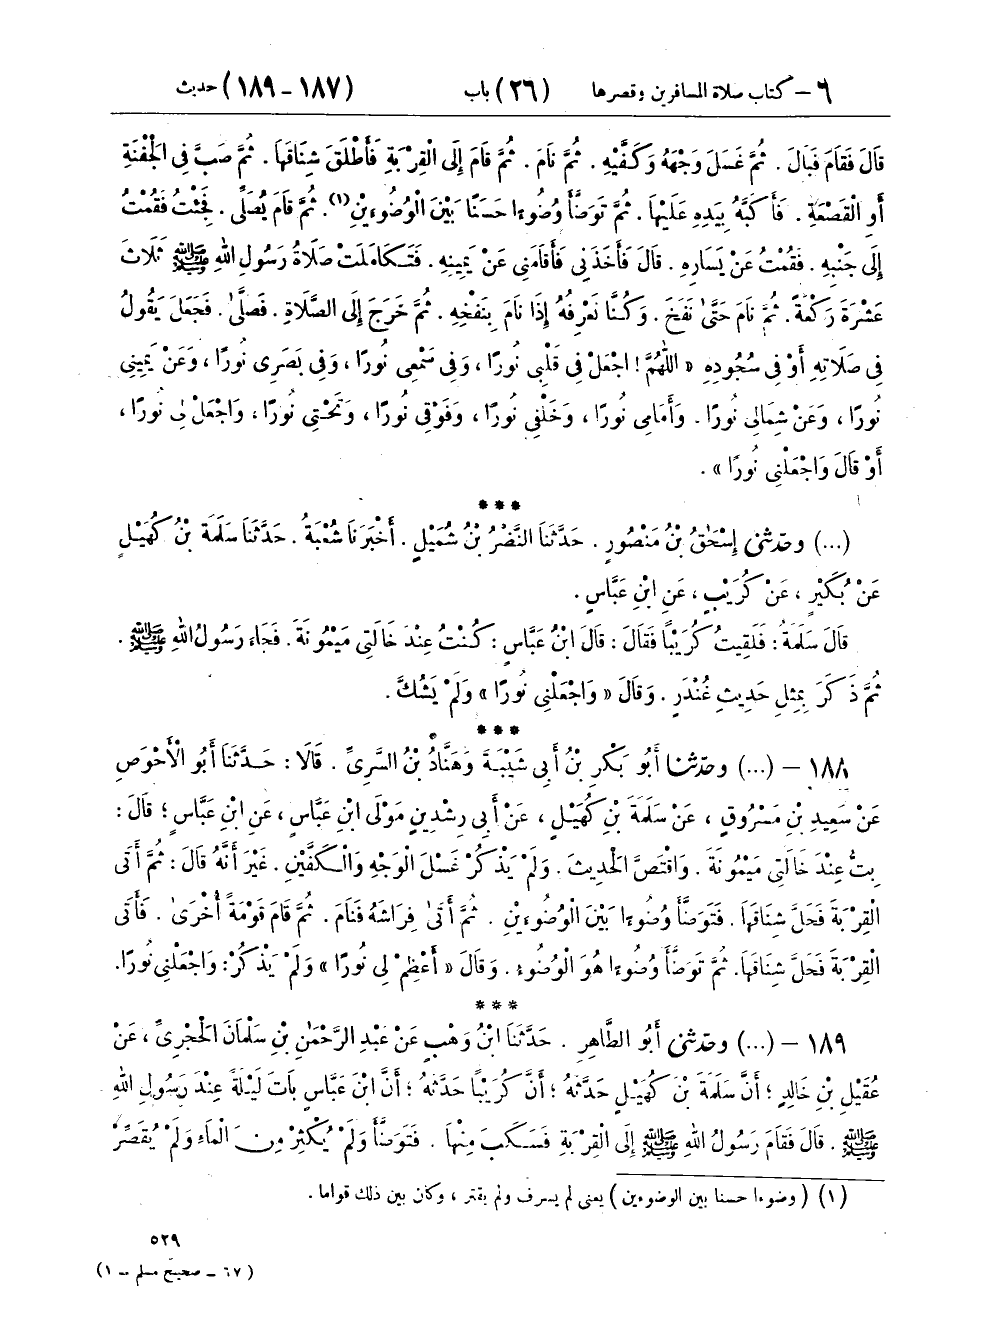 ٦ – كتاب صلاة المسافرين وقصرها (٢٦) باب (١٨٧ – ١٨٩) حديث
قَالَ فَقَامَ فَبَالَ . ثُمَّ غَسَلَ وَجْهَهُ وَكَفَّيْهِ . ثُمَّ نَامَ . ثُمَّ قَامَ إِلَى الْقِرْبَةِ فَأَطْلَقَ شِنَاقَهَا . ثُمَّ صَبَّ فِي الْجَفْنَةِ
أَوِ الْقَصْعَةِ . فَأَكَبَّهُ بِيَدِهِ عَلَيْهَا . ثُمَّ تَوَضَّأَ وُضُوءًا حَسَنًا بَيْنَ الْوُضُوءَيْنِ(١). ثُمَّ قَامَ يُصَلِّي . فَجِئْتُ فَقُمْتُ
إِلَى جَنْبِهِ . فَقُمْتُ عَنْ يَسَارِهِ . قَالَ فَأَخَذَنِي فَأَقَامَنِي عَنْ يَمِينِهِ . فَتَكَامَلَتْ صَلَاةُ رَسُولِ اللهِ ﷺ ثَلَاثَ
عَشْرَةَ رَكْعَةً . ثُمَّ نَامَ حَتَّىٰ نَفَخَ . وَكُنَّا نَعْرِفُهُ إِذَا نَامَ بِنَفْخِهِ . ثُمَّ خَرَجَ إِلَى الصَّلَاةِ . فَصَلَّىٰ . فَجَعَلَ يَقُولُ
فِي صَلَاتِهِ أَوْ فِي سُجُودِهِ « اللّٰهُمَّ ! اجْعَلْ فِي قَلْبِي نُورًا ، وَفِي سَمْعِي نُورًا ، وَفِي بَصَرِي نُورًا ، وَعَنْ يَمِينِي
نُورًا ، وَعَنْ شِمَالِي نُورًا . وَأَمَامِي نُورًا ، وَخَلْفِي نُورًا ، وَفَوْقِي نُورًا ، وَتَحْتِي نُورًا ، وَاجْعَلْ لِي نُورًا ،
أَوْ قَالَ وَاجْعَلْنِي نُورًا » .
***
(...) وحَدَّثَنِي إِسْحَٰقُ بْنُ مَنْصُورٍ . حَدَّثَنَا النَّضْرُ بْنُ شُمَيْلٍ . أَخْبَرَنَا شُعْبَةُ . حَدَّثَنَا سَلَمَةُ بْنُ كُهَيْلٍ
عَنْ بُكَيْرٍ ، عَنْ كُرَيْبٍ ، عَنِ ابْنِ عَبَّاسٍ .
قَالَ سَلَمَةُ : فَلَقِيتُ كُرَيْبًا فَقَالَ : قَالَ ابْنُ عَبَّاسٍ : كُنْتُ عِنْدَ خَالَتِي مَيْمُونَةَ . فَجَاءَ رَسُولُ اللهِ ﷺ .
ثُمَّ ذَكَرَ بِمِثْلِ حَدِيثِ غُنْدَرٍ . وَقَالَ « وَاجْعَلْنِي نُورًا » وَلَمْ يَشُكَّ .
***
١٨٨ – (...) وحَدَّثَنَا أَبُو بَكْرِ بْنُ أَبِي شَيْبَةَ وَهَنَّادُ بْنُ السَّرِيِّ . قَالَا : حَدَّثَنَا أَبُو الْأَحْوَصِ
عَنْ سَعِيدِ بْنِ مَسْرُوقٍ ، عَنْ سَلَمَةَ بْنِ كُهَيْلٍ ، عَنْ أَبِي رِشْدِينٍ مَوْلَى ابْنِ عَبَّاسٍ ، عَنِ ابْنِ عَبَّاسٍ ؛ قَالَ :
بِتُّ عِنْدَ خَالَتِي مَيْمُونَةَ . وَاقْتَصَّ الْحَدِيثَ . وَلَمْ يَذْكُرْ غَسْلَ الْوَجْهِ وَالْكَفَّيْنِ . غَيْرَ أَنَّهُ قَالَ : ثُمَّ أَتَى
الْقِرْبَةَ فَحَلَّ شِنَاقَهَا . فَتَوَضَّأَ وُضُوءًا بَيْنَ الْوُضُوءَيْنِ . ثُمَّ أَتَىٰ فِرَاشَهُ فَنَامَ . ثُمَّ قَامَ قَوْمَةً أُخْرَىٰ . فَأَتَى
الْقِرْبَةَ فَحَلَّ شِنَاقَهَا. ثُمَّ تَوَضَّأَ وُضُوءًا هُوَ الْوُضُوءُ . وَقَالَ « أَعْظِمْ لِي نُورًا » وَلَمْ يَذْكُرْ : وَاجْعَلْنِي نُورًا.
***
١٨٩ – (...) وحَدَّثَنِي أَبُو الطَّاهِرِ . حَدَّثَنَا ابْنُ وَهْبٍ عَنْ عَبْدِ الرَّحْمَٰنِ بْنِ سَلْمَانَ الْحَجْرِيِّ ، عَنْ
عُقَيْلِ بْنِ خَالِدٍ ؛ أَنَّ سَلَمَةَ بْنَ كُهَيْلٍ حَدَّثَهُ ؛ أَنَّ كُرَيْبًا حَدَّثَهُ ؛ أَنَّ ابْنَ عَبَّاسٍ بَاتَ لَيْلَةً عِنْدَ رَسُولِ اللهِ
ﷺ . قَالَ فَقَامَ رَسُولُ اللهِ ﷺ إِلَى الْقِرْبَةِ فَسَكَبَ مِنْهَا . فَتَوَضَّأَ وَلَمْ يُكْثِرْ مِنَ الْمَاءِ وَلَمْ يُقَصِّرْ
(١) (وضوءا حسنا بين الوضوءين) يعنى لم يسرف ولم يقتر ، وكان بين ذلك قواما .
٥٢٩
(٦٧ – صحيح مسلم – ١)